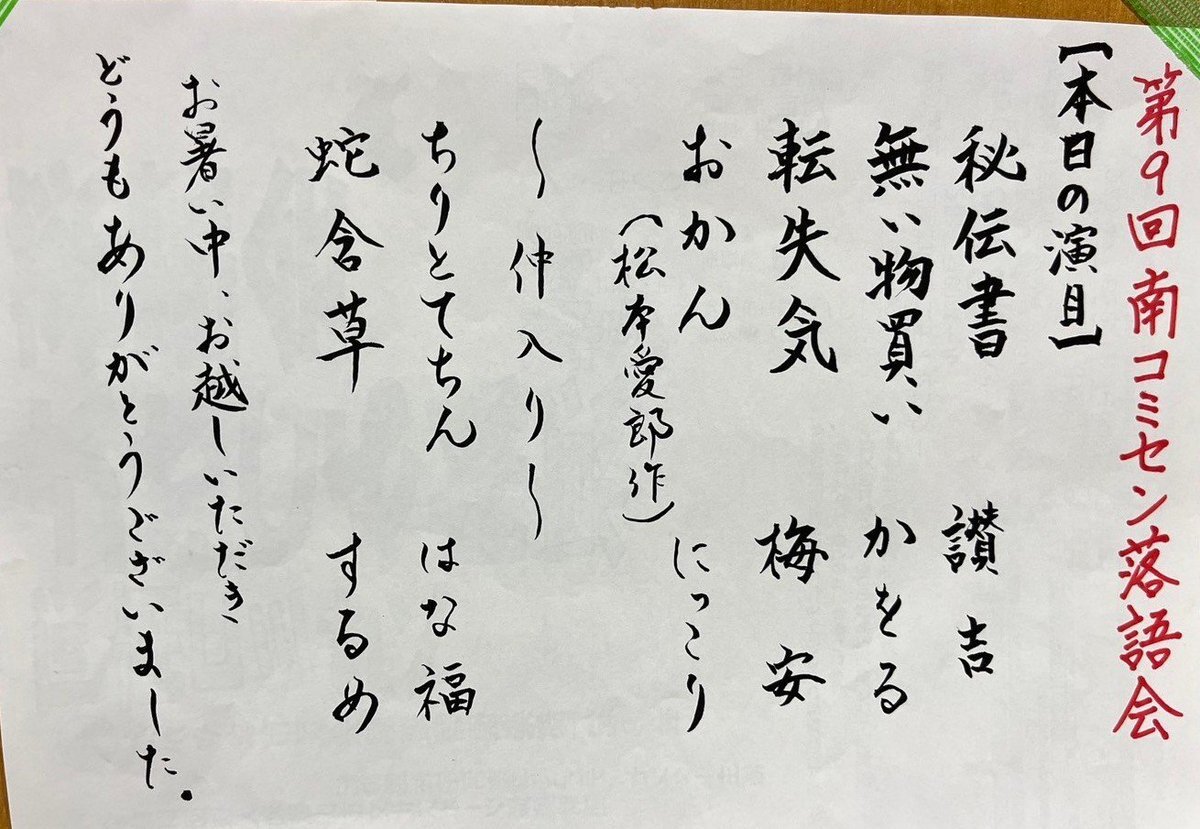 第9回南コミセン落語会
【本日の演目】
秘伝書 讃吉
無い物買い かをる
転失気 梅安
おかん にっこり
(松本愛郎作)
〜仲入り〜
ちりとてちん はな福
蛇含草 するめ
お暑い中、お越しいただき
どうもありがとうございました。